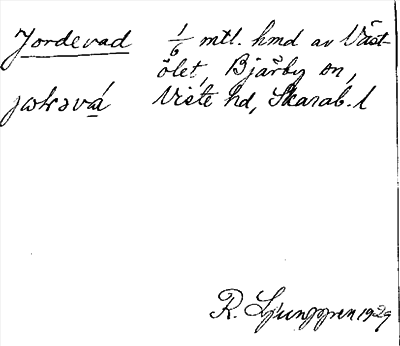 Jordevad 1/6 mtl. hmd av Väst-
ölet, Bjärby sn,
Viste hd, Skarab. l
R. Ljunggren 1929